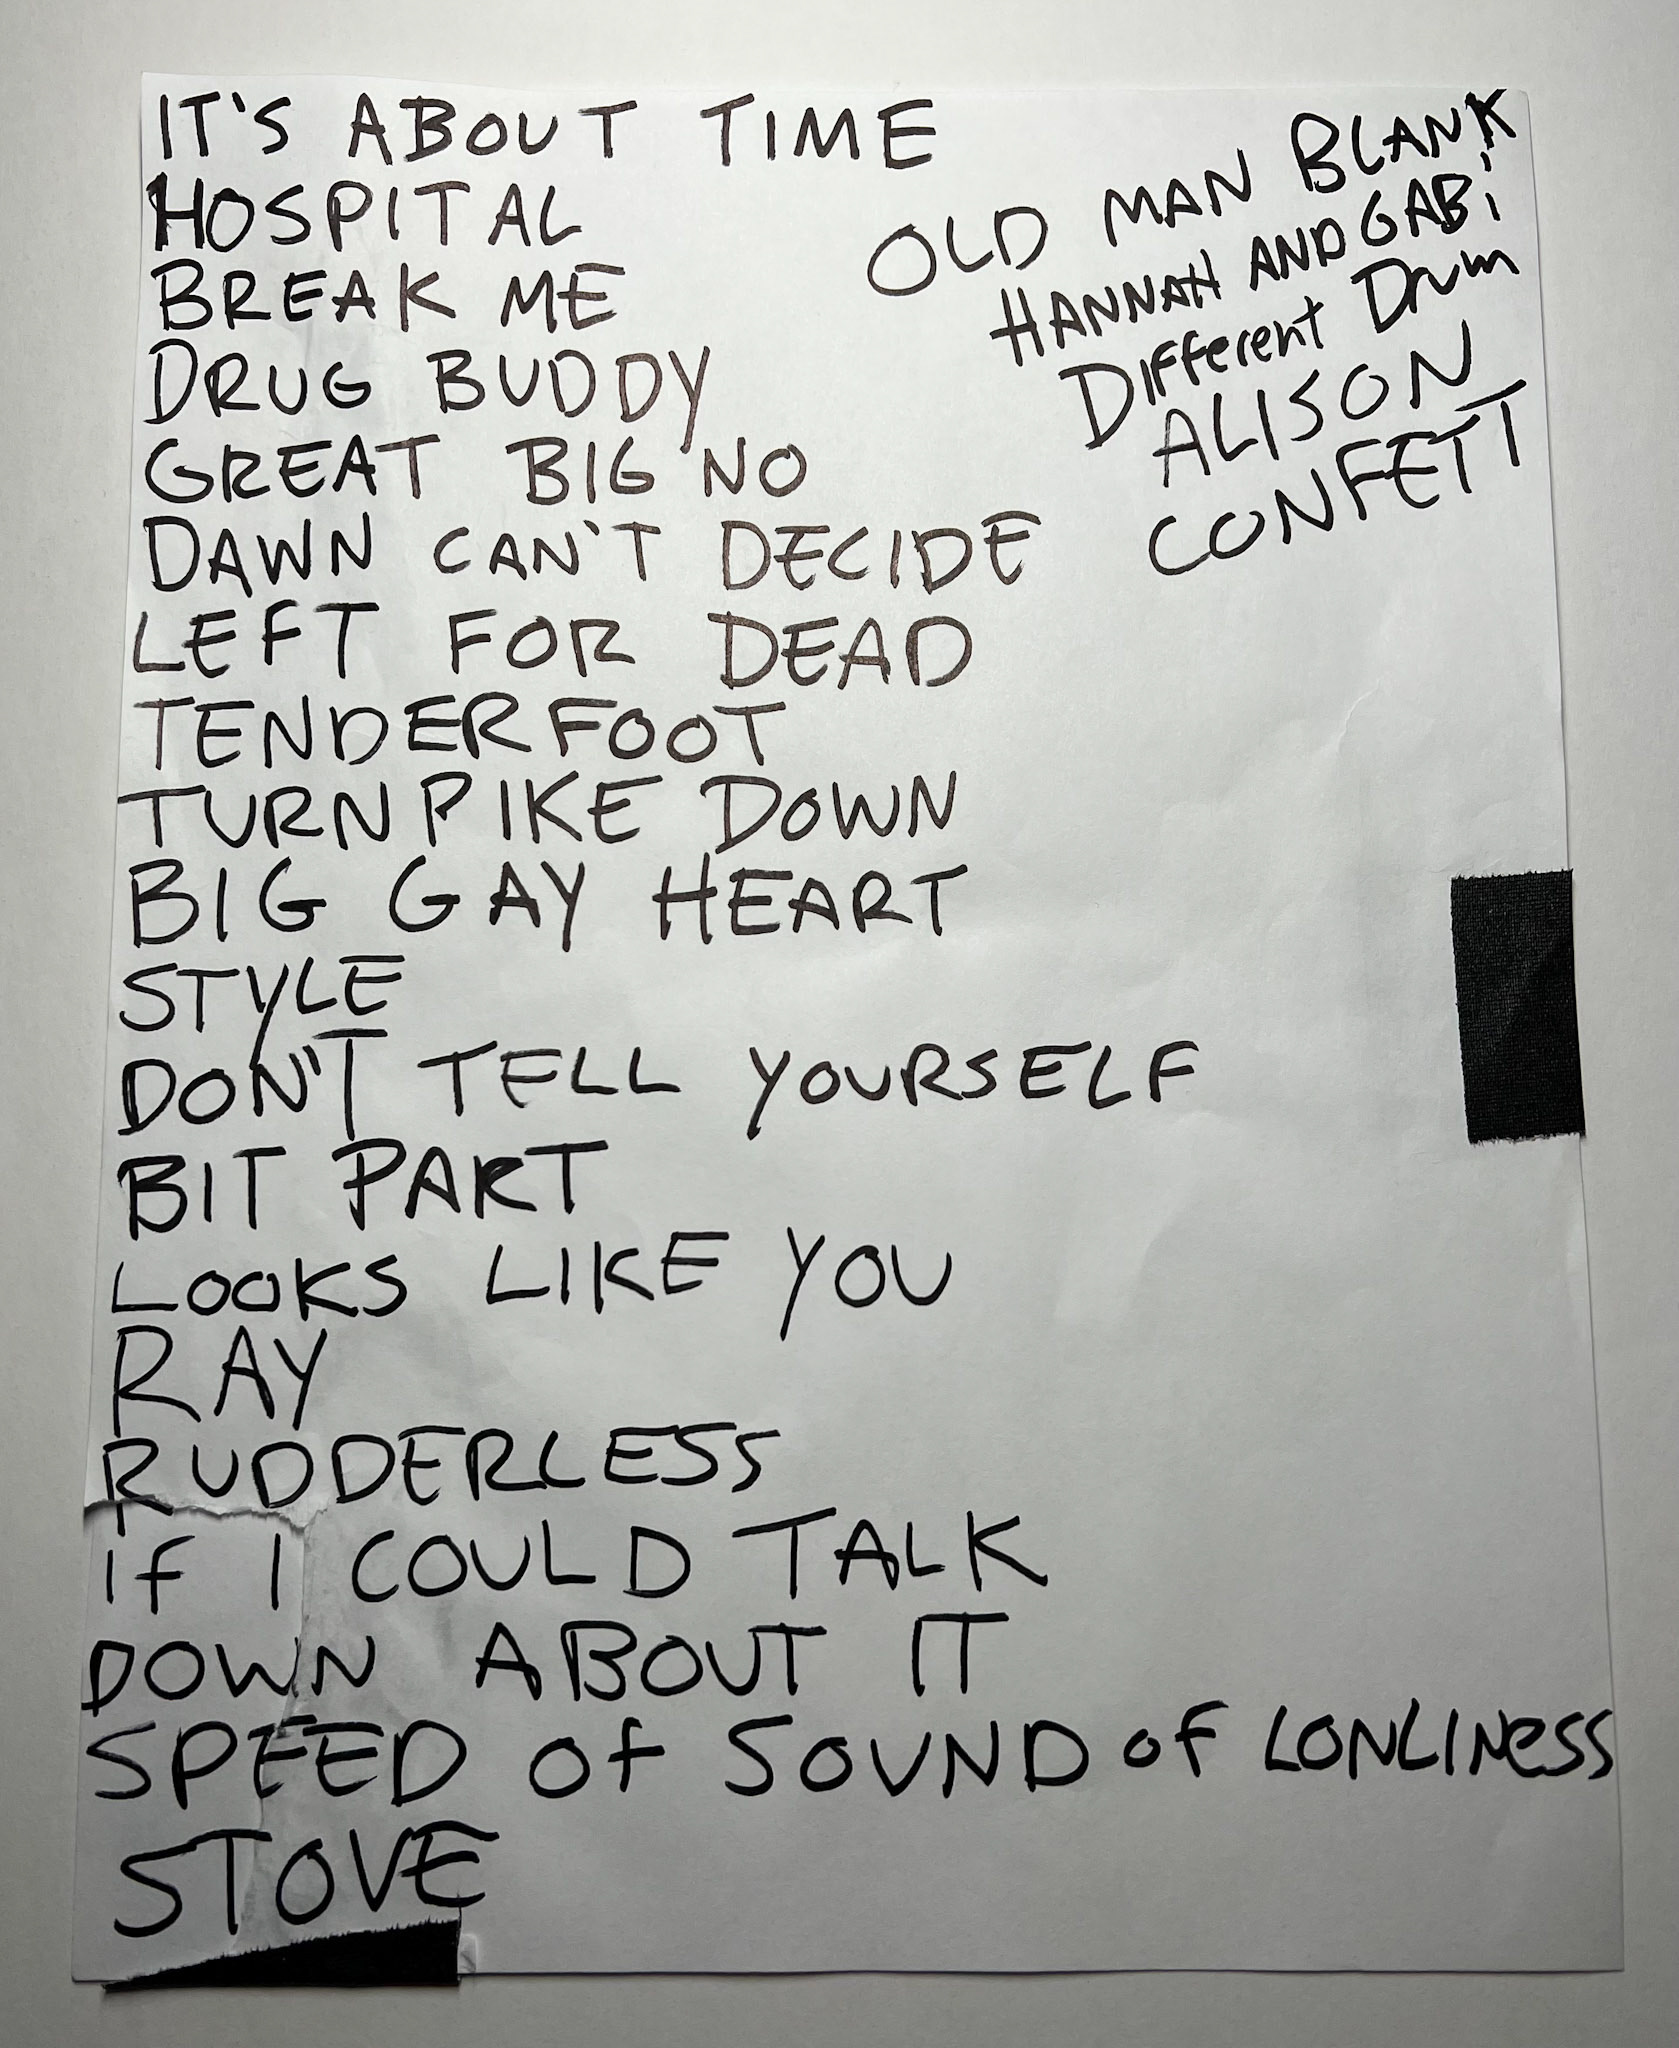 IT'S ABOUT TIME
HOSPITAL
BREAK ME
DRUG BUDDY
GREAT BIG NO
DAWN CAN'T DECIDE
LEFT FOR DEAD
TENDERFOOT
TURNPIKE DOWN
BIG GAY HEART
STYLE
DON'T TELL YOURSELF
BIT PART
LOOKS LIKE YOU
RAY
RUDDERLESS
If I COULD TALK
DOWN ABOUT IT
SPEED Of SOUND of LONLINESS
STOVE
OLD MAN BLANK
HANNAH AND GABi
DIfferent Drum
ALISON
CONFETT